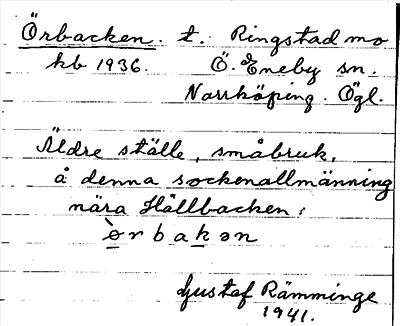 Örbacken. t. Ringstad mo
kb 1936. Ö. Eneby sn.
Norrköping. Ögl.
Äldre ställe, småbruk,
å denna sockenallmänning
nära Hällbacken:
ò̱rbaḵən
Gustaf Rämminge
1941.